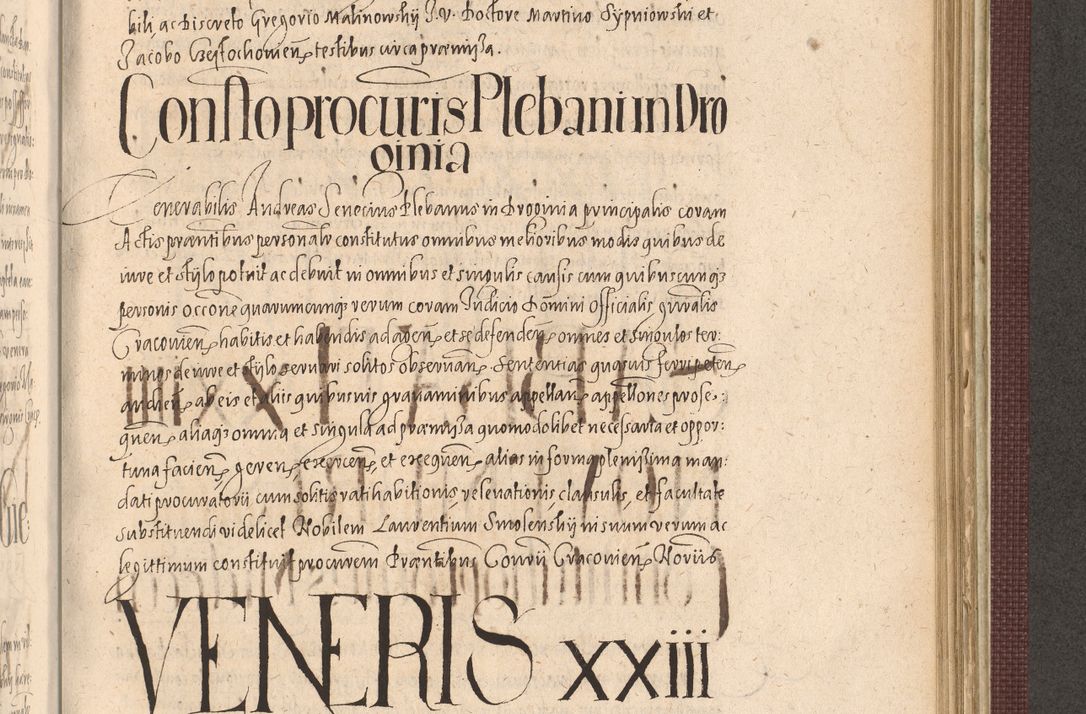 bili, ac Discreto Gregorio Malinowskÿ J. V. Doctore Martino Sypniowski et
Jacobo Częstochovien̄ testibus circa præmissa.
Con̄stio procuris Plebani in Dro
ginia
Venerabilis Andreas Senecius Plebanus in Droginia principalis coram
Actis præn̄tibus personalr constitutus omnibus melioribus modis quibus de
iure et stÿlo potuit ac debuit in omnibus et singulis causis cum quibuscunq3
personis occōne quarumcunq3 rerum coram Judicio Domini Officialis gn̄ralis
Cracovien̄ habitis et habendis ad agen̄ et se defenden̄ omnes et singulos ter:
minos de iure et stÿlo servari solitos observan̄ Sententias quasuis ferri peten̄
audien̄ ab eis et aliis quibusuis grauaminibus appellan̄ appellōnes prose:
quen̄ aliaq3 omnia et singula ad præmissa quomodolibet necessaria et oppor:
tuna facien̄ geren̄ exercen̄ et exequen̄ alias in forma plenissima man:
dati procuratorii cum solitis ratihabitionis relevationis clausulis, et facultate
substituendi videlicet Nobilem Laurentium Smolenskÿ in suum verum ac
legittimum constituit procurem Præntibus Conrii Cracovien̄ Noriis
VENERIS xxiii